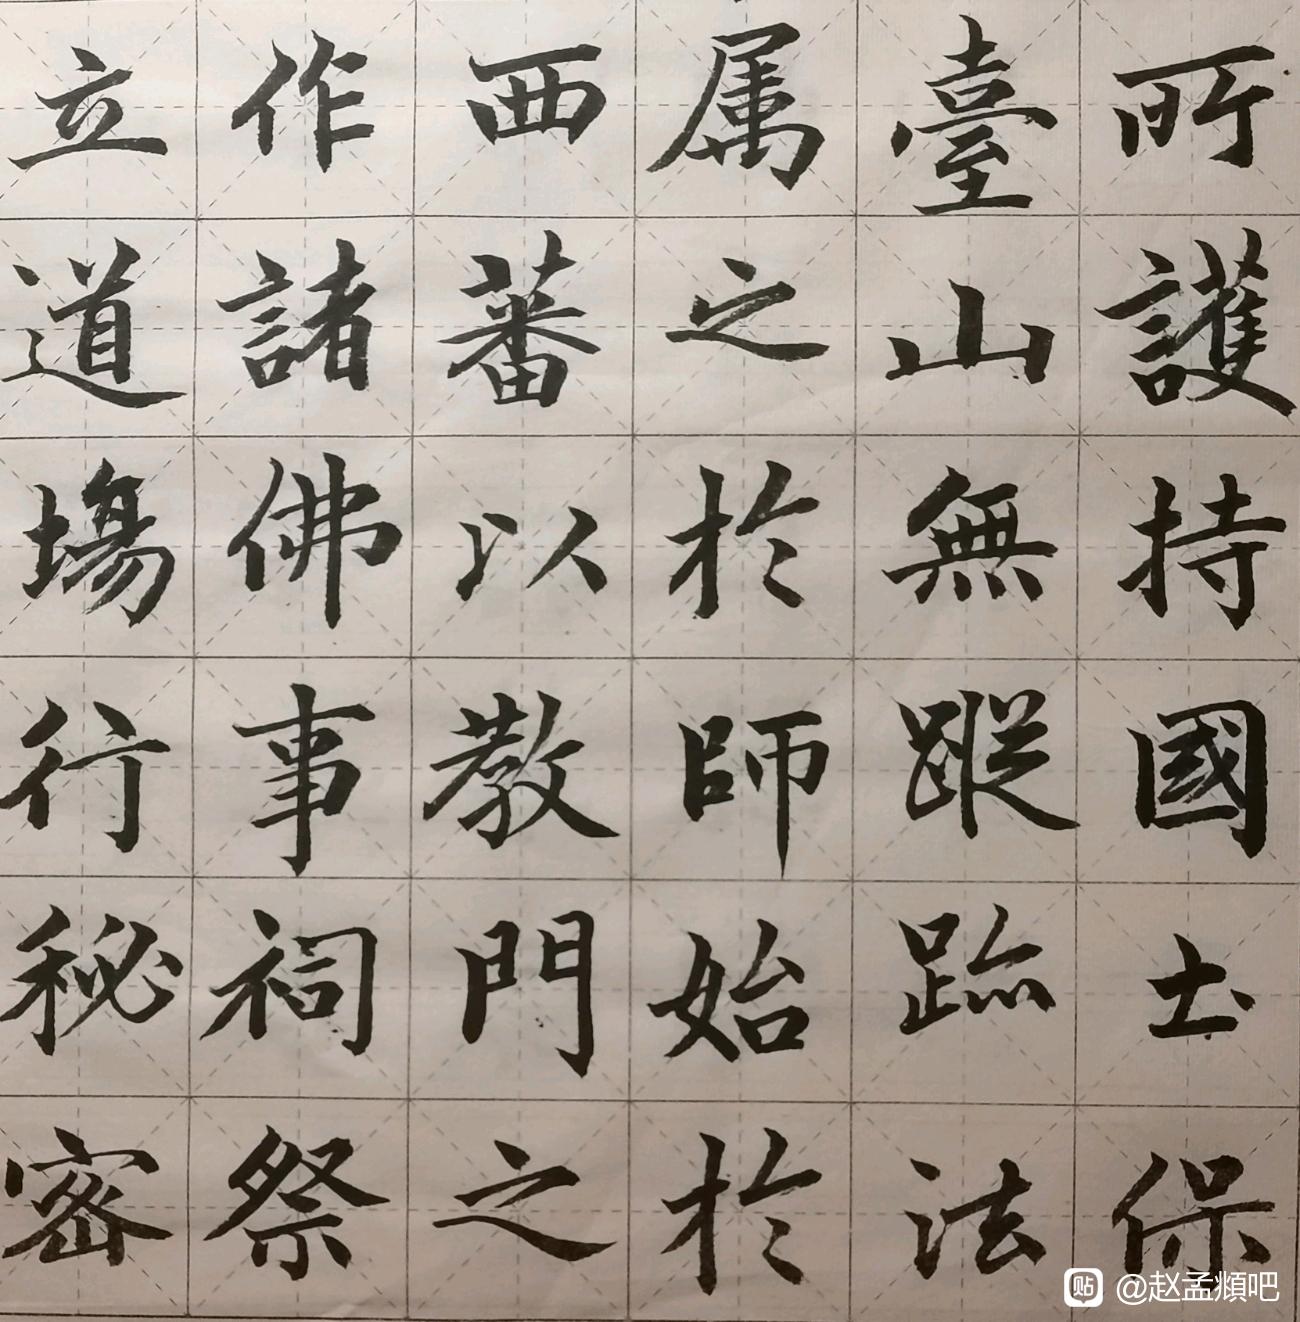 所護持國土保
臺山無蹤跡法
属之於師始於
西蕃以教門之
作諸佛事祠祭
立道場行秘密
貼 @赵孟頫吧